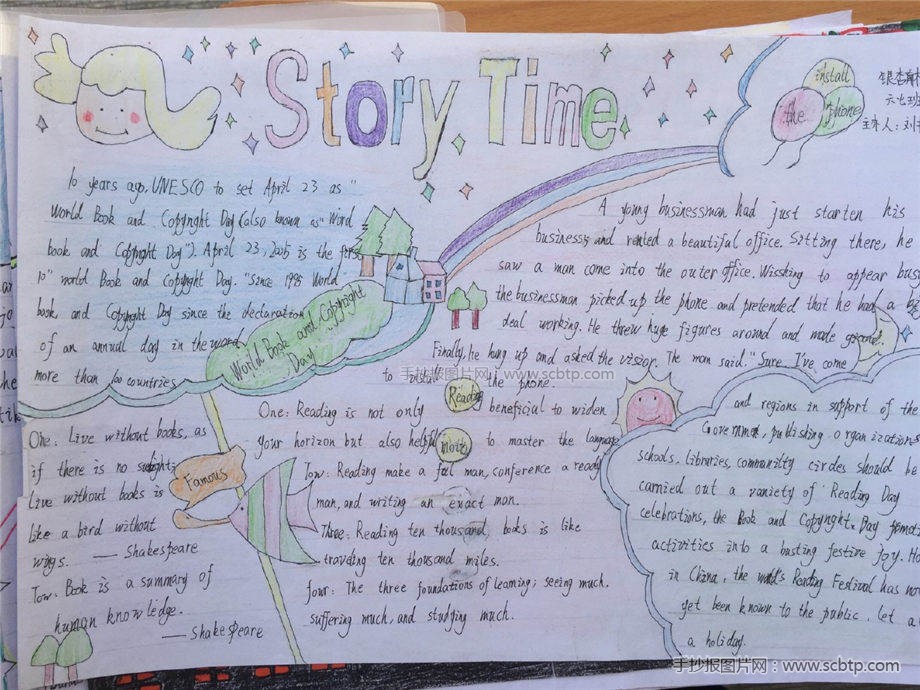 Story Time
install
the phone
银杏
六七班
主持人：刘
10 years ago, UNESCO to set April 23 as "
World Book and Copyright Day (also known as "Word
book and Copyright Day"). April 23, 2005 is the firs
10" world Book and Copyright Day. "Since 1995 World
book and Copyright Day since the declaration
of an annual day in the word
more than 100 countries
World Book and Copyright
Day
A young businessman had just starten his
business, and rented a beautiful office. Sitting there, he
saw a man come into the outer office. Wissking to appear busy
the businessman picked up the phone and pretended that he had a big
deal working. He threw huge figures around and made
Finally, he hung up and asked the visior. The man said. "Sure. I've come
to install the phone.
手抄报图片网：www.scbtp.com
One: Live without books, as
if there is no sunlight;
Live without books is
like a bird without
wings. — Shakespeare
Tow: Book is a summary of
human knowledge.
— Shakespeare
Famous
Reading
motto
One: Reading is not only beneficial to widen
your horizon but also helpful to to master the language
Tow: Reading make a full man, conference a ready
man, and writing an exact man.
Three: Reading ten thousand books is like
traveling ten thousand miles.
four: The three foundations of learning; seeing much.
suffering much, and studying much.
and regions in support of the
Government, publishing organizations
schools, libraries, community circles should be
carried out a variety of Reading Day
celebrations, the Book and Copyright Day
activities into a busting festive joy.
in China, the world's Reading Festival has not
yet been known to the public. let a
a holiday.
手抄报图片网：www.scbtp.com